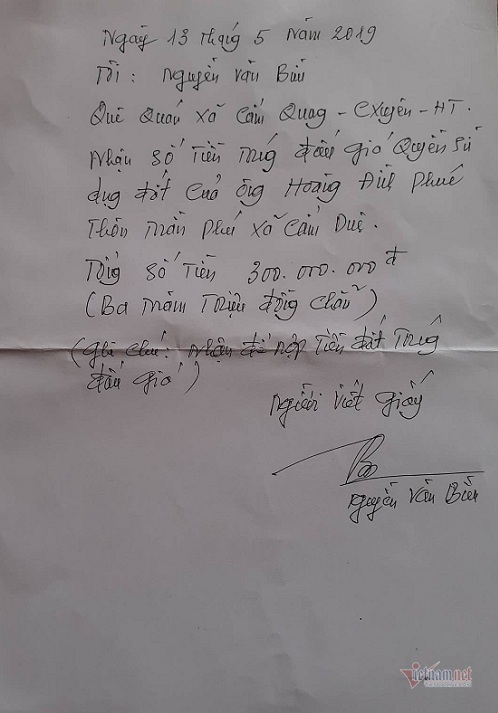 Ngày 13 tháng 5 Năm 2019
Tôi : Nguyễn Văn Bửu
Quê Quán Xã Cẩm Quag - CXuyên - HT.
Nhận Số Tiền Trúg đấu giá Quyền Sử
dụng đất Của ông Hoàng Đìh Phué
Thôn Trần Phú Xã Cẩm Duệ.
Tổng Số Tiền 300.000.000 đ
(Ba Trăm Triệu đồng Chẵn)
(Ghi Chú: Nhận để nộp Tiền đất Trúg
đấu giá)
Người Viết giấy
Nguyễn Văn Bửu
vietnamnet